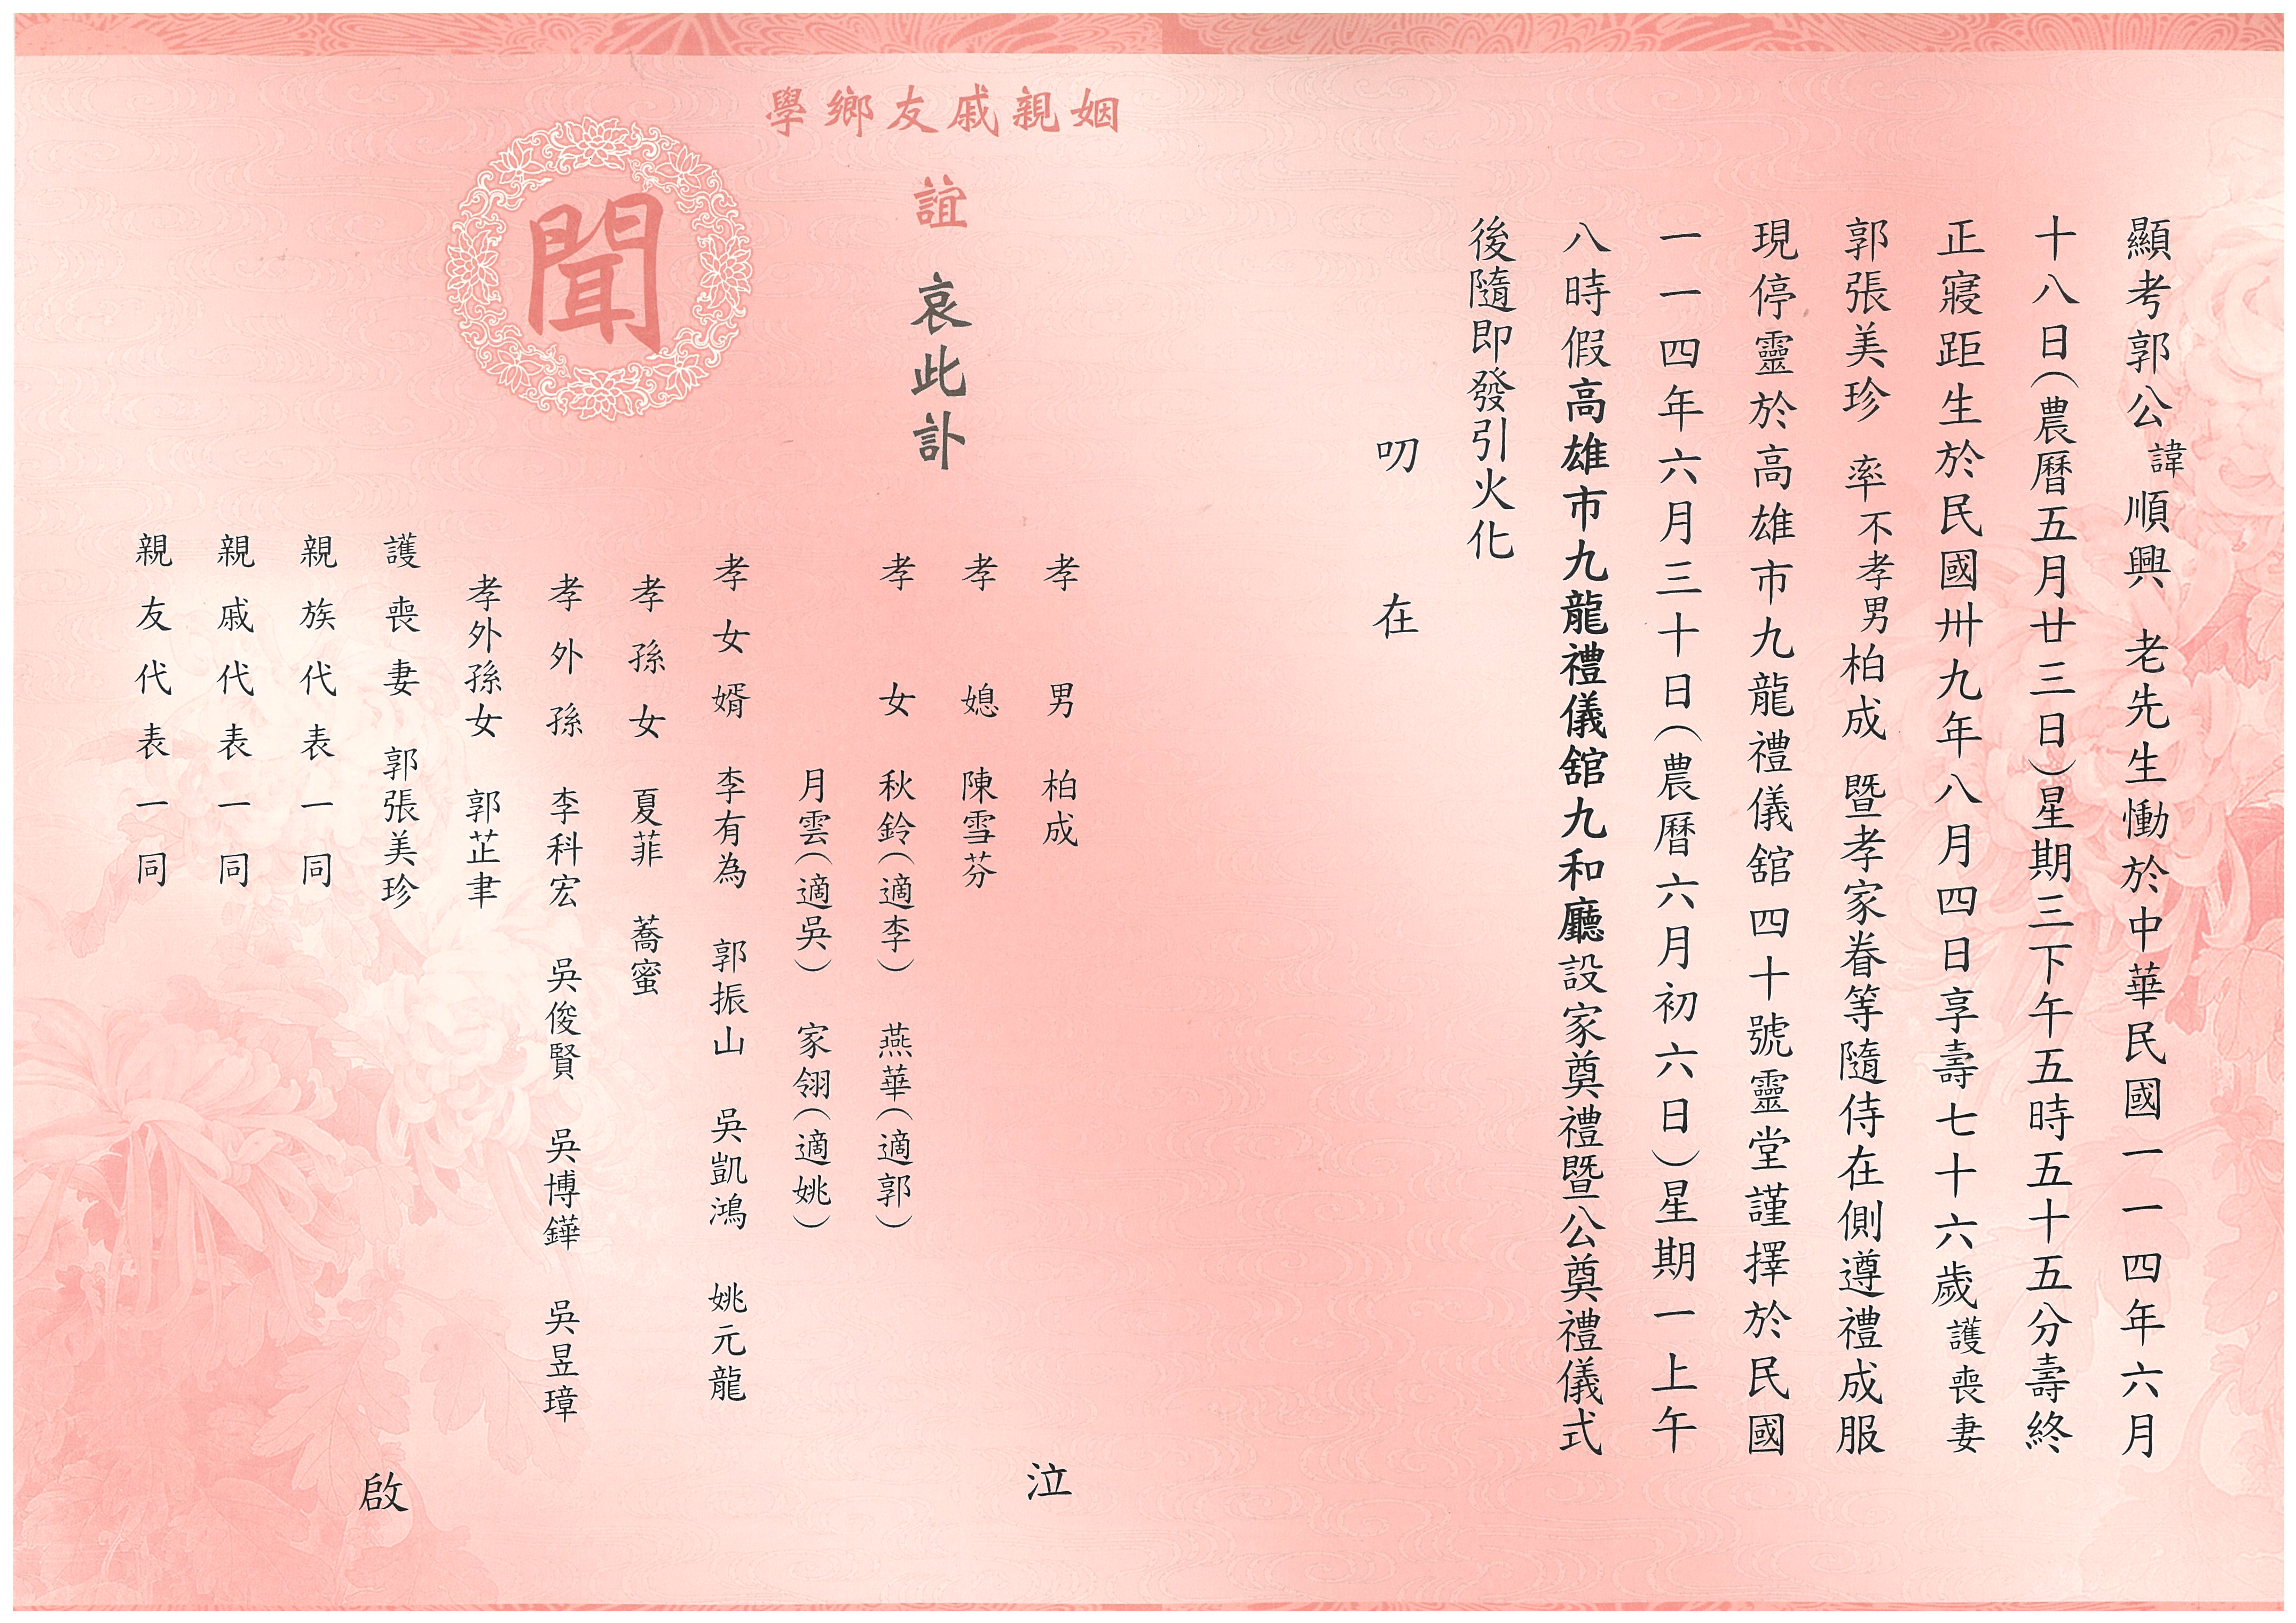 顯考郭公諱順興　老先生慟於中華民國一一四年六月
十八日（農曆五月廿三日）星期三下午五時五十五分壽終
正寢距生於民國卅九年八月四日享壽七十六歲護喪妻
郭張美珍　率不孝男柏成　暨孝家眷等隨侍在側遵禮成服
現停靈於高雄市九龍禮儀舘四十號靈堂謹擇於民國
一一四年六月三十日（農曆六月初六日）星期一上午
八時假高雄市九龍禮儀舘九和廳設家奠禮暨公奠禮儀式
後隨即發引火化
叨　在
姻親戚友鄉學
誼　哀此訃
聞
孝　男　柏成
孝　媳　陳雪芬
孝　女　秋鈴（適李）　燕華（適郭）
月雲（適吳）　家翎（適姚）
孝女婿　李有為　郭振山　吳凱鴻　姚元龍
孝孫女　夏菲　蕎蜜
孝外孫　李科宏　吳俊賢　吳博鏵　吳昱璋
孝外孫女　郭芷聿
護喪妻　郭張美珍
親族代表一同
親戚代表一同
親友代表一同
泣
啟